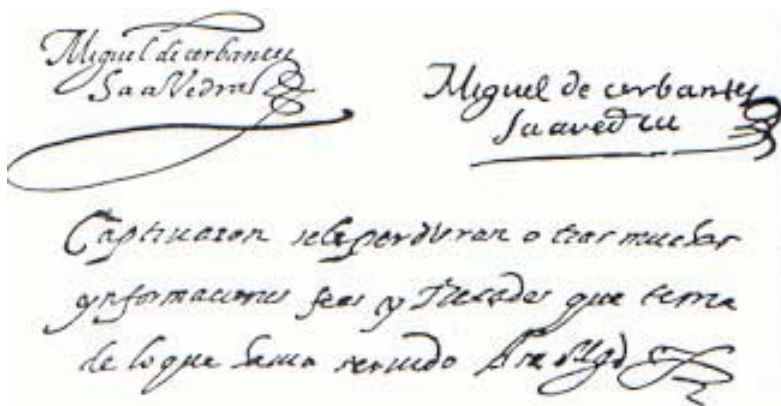 Miguel de cerbantes
SaaVedra
Miguel de cerbantes
Saavedra
Captiuaron sele perdieron otras muchas
ynformaciones fees y Recados que tenia
de lo que hauia seruido